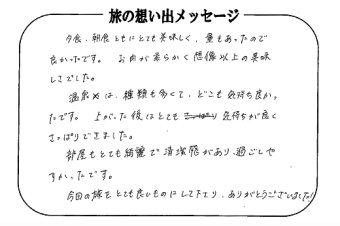 旅の想い出メッセージ
夕食、朝食ともにとても美味しく、量もあったので
良かったです。 お肉が柔らかく想像以上の美味
しさでした。
温泉は、種類も多くて、どこも気持ち良かっ
たです。 上がった後はとても 気持が良く
さっぱりできました。
部屋もとても綺麗で清潔感があり、過ごしや
すかったです。
今回の旅をとても良いものにして下さり、ありがとうございました!